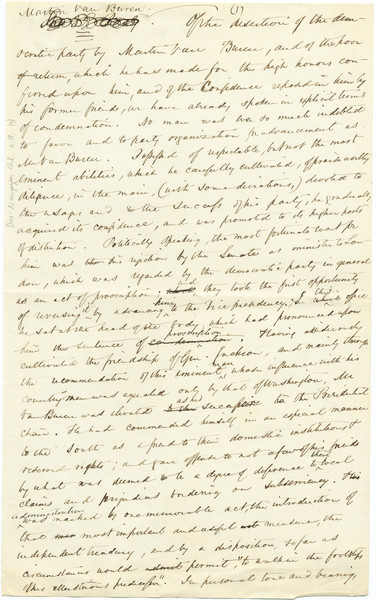 Martin Van Buren.
(1)
Of the desertion of the dem-
ocratic party by Martin Van Buren, and of the poor
return, which he has made for the high honors con-
ferred upon him, and of the confidence reposed in him by
his former friends, we have already spoken in explicit terms
of condemnation. No man was ever so much indebted
to favor and to party organization for advancement as
Mr. Van Buren. Possessed of respectable, but not the most
eminent abilities, which he carefully cultivated, of praiseworthy
diligence, in the main, (with some deviations,) devoted to
the usages and to the success of his party, he gradually
acquired its confidence, and was promoted to its higher posts
of distinction. Politically speaking, the most fortunate event for
him was his rejection by the Senate as minister to Lon-
don, which was regarded by the democratic party in general
as an act of proscription and they took the first opportunity
of reversing it by advancing him to the Vice presidency. In this office
he sat at the head of the body, which had pronounced upon
him the sentence of proscription. Having assiduously
cultivated the friendship of Gen. Jackson, and mainly through
the recommendation of this eminent man, whose influence with his
countrymen was equalled only by that of Washington, Mr.
Van Buren was elevated as his successor to the Presidential
chair. He had commended himself in an especial manner
to the South as a friend to their domestic institutions &
reserved rights; and gave offense to not a few of his friends
by what was deemed to be a degree of deference to their local
claims and prejudices bordering on subserviency. His
administration was marked by one memorable act, the introduction of
that most important and useful measure, the
independent treasury, and by a disposition, so far as
circumstances would permit, "to walk in the footsteps
of his illustrious predecessor". In personal tone and bearing,